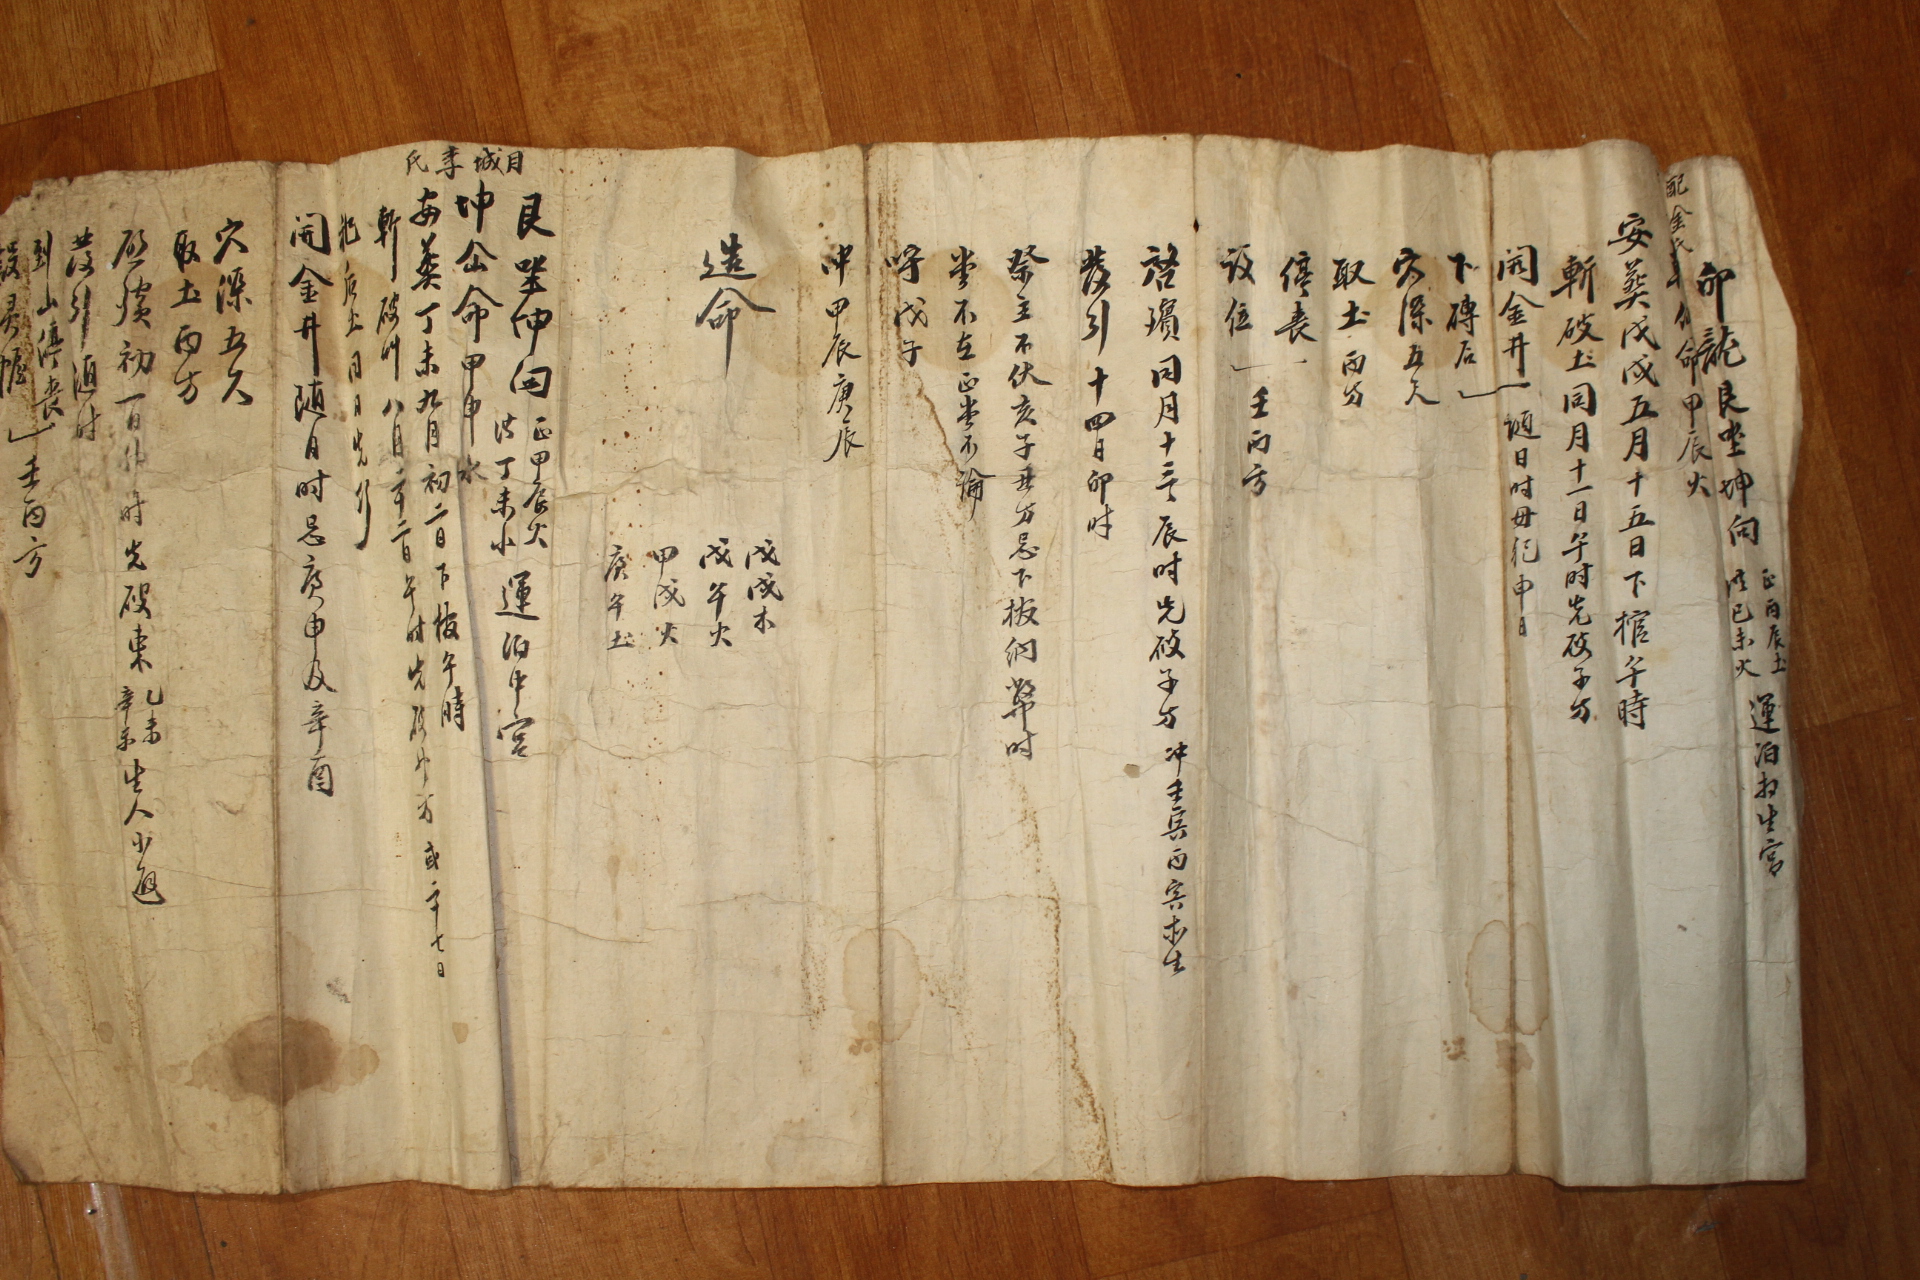 卯龍艮坐坤向 正丙辰土 运泊扫生宫
己未火
配金氏 仙命甲辰火
安葬戊戌五月十五日下棺午時
斬破土同月十一日午时先破子方
開金井 随日时毋犯申日
下磚后
穴深五尺
取土丙方
停丧
設位 壬丙方
啓殯同月十三辰时先破子方冲壬寅丙寅
發引十四日卯时
祭主不伏亥子丑方忌下板納幣时
堂不在正堂不論
呼戊子
冲甲辰庚辰
造命
戊戌木
戊午火
甲戌火
庚午土
艮坐坤向 正甲辰火 運泊中宮
丁未水
坤仙命甲申水
目城李氏
安葬丁未九月初二日下板午時
斬破州八月二十二日午时先破 或二十七日
犯后土同日先行
開金井随日时忌庚申及辛酉
穴深五尺
取土丙方
啟殯初一日 时先破東 乙未 辛未 生人小避
發引酒时
到山停丧 壬丙方
設灵幄